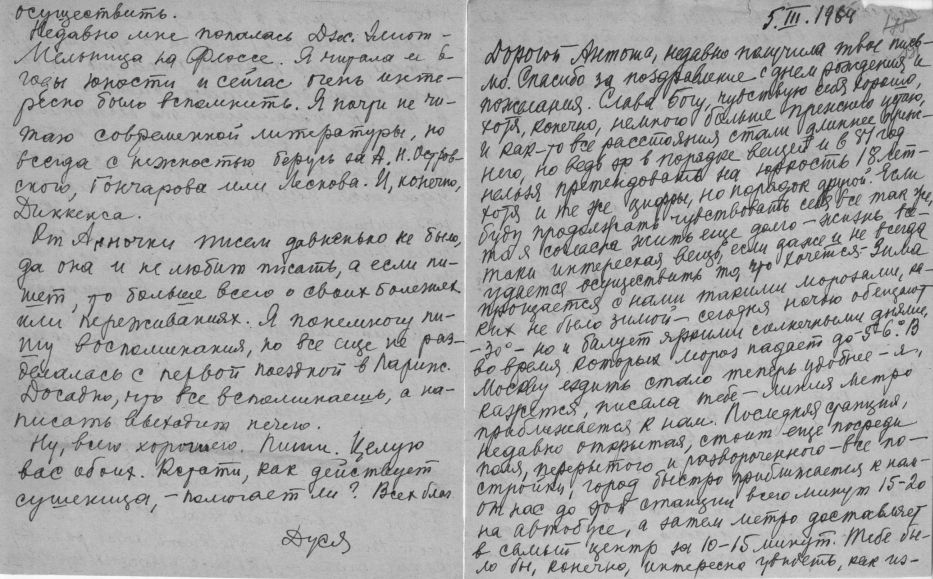 осуществить.
Недавно мне попалась Дж. Элиот-
Мельница на Флоссе. Я читала ее в
годы юности и сейчас очень инте-
ресно было вспомнить. Я почти не чи-
таю современной литературы, но
всегда с нежностью берусь за А. Н. Остров-
ского, Гончарова или Лескова. И, конечно,
Диккенса.
От Анночки писем давненько не было,
да она и не любит писать, а если пи-
шет, то больше всего о своих болезнях
или переживаниях. Я понемногу пи-
шу воспоминания, но все еще не раз-
делалась с первой поездкой в Париж.
Досадно, что все вспоминаешь, а на-
писать выходит нечего.
Ну, всего хорошего. Пиши. Целую
вас обоих. Кстати, как действует
сушеница, - помогает ли? Всех благ
Дуся
5.III.1969
Дорогой Антоша, недавно получила твое пись-
мо. Спасибо за поздравление с днем рождения и
пожелания. Слава Богу, чувствую себя хорошо,
хотя, конечно, немного больше прежнего устаю,
и как-то все расстояния стали длиннее преж-
него, но ведь это в порядке вещей и в 81 год
нельзя претендовать на юркость 18 лет-
хотя и те же цифры, но порядок другой. Если
буду продолжать чувствовать себя все так же,
то я согласна жить еще долго - жизнь все-
таки интересная вещь, если даже и не всегда
удается осуществить то, что хочется. Зима
прощается с нами такими морозами, ка-
ких не было зимой - сегодня ночью обещают
-30° - но и балует яркими солнечными днями,
во время которых мороз падает до -5-6°. В
Москву ездить стало теперь удобнее - я,
кажется, писала тебе - линия метро
приближается к нам. Последняя станция,
недавно открытая, стоит еще посреди
поля, перерытого и развороченного - все по-
стройки, город быстро приближается к нам
от нас до этой станции всего минут 15-20
на автобусе, а затем метро доставляет
в самый центр за 10-15 минут. Тебе бы-
ло бы, конечно, интересно увидеть, как из-